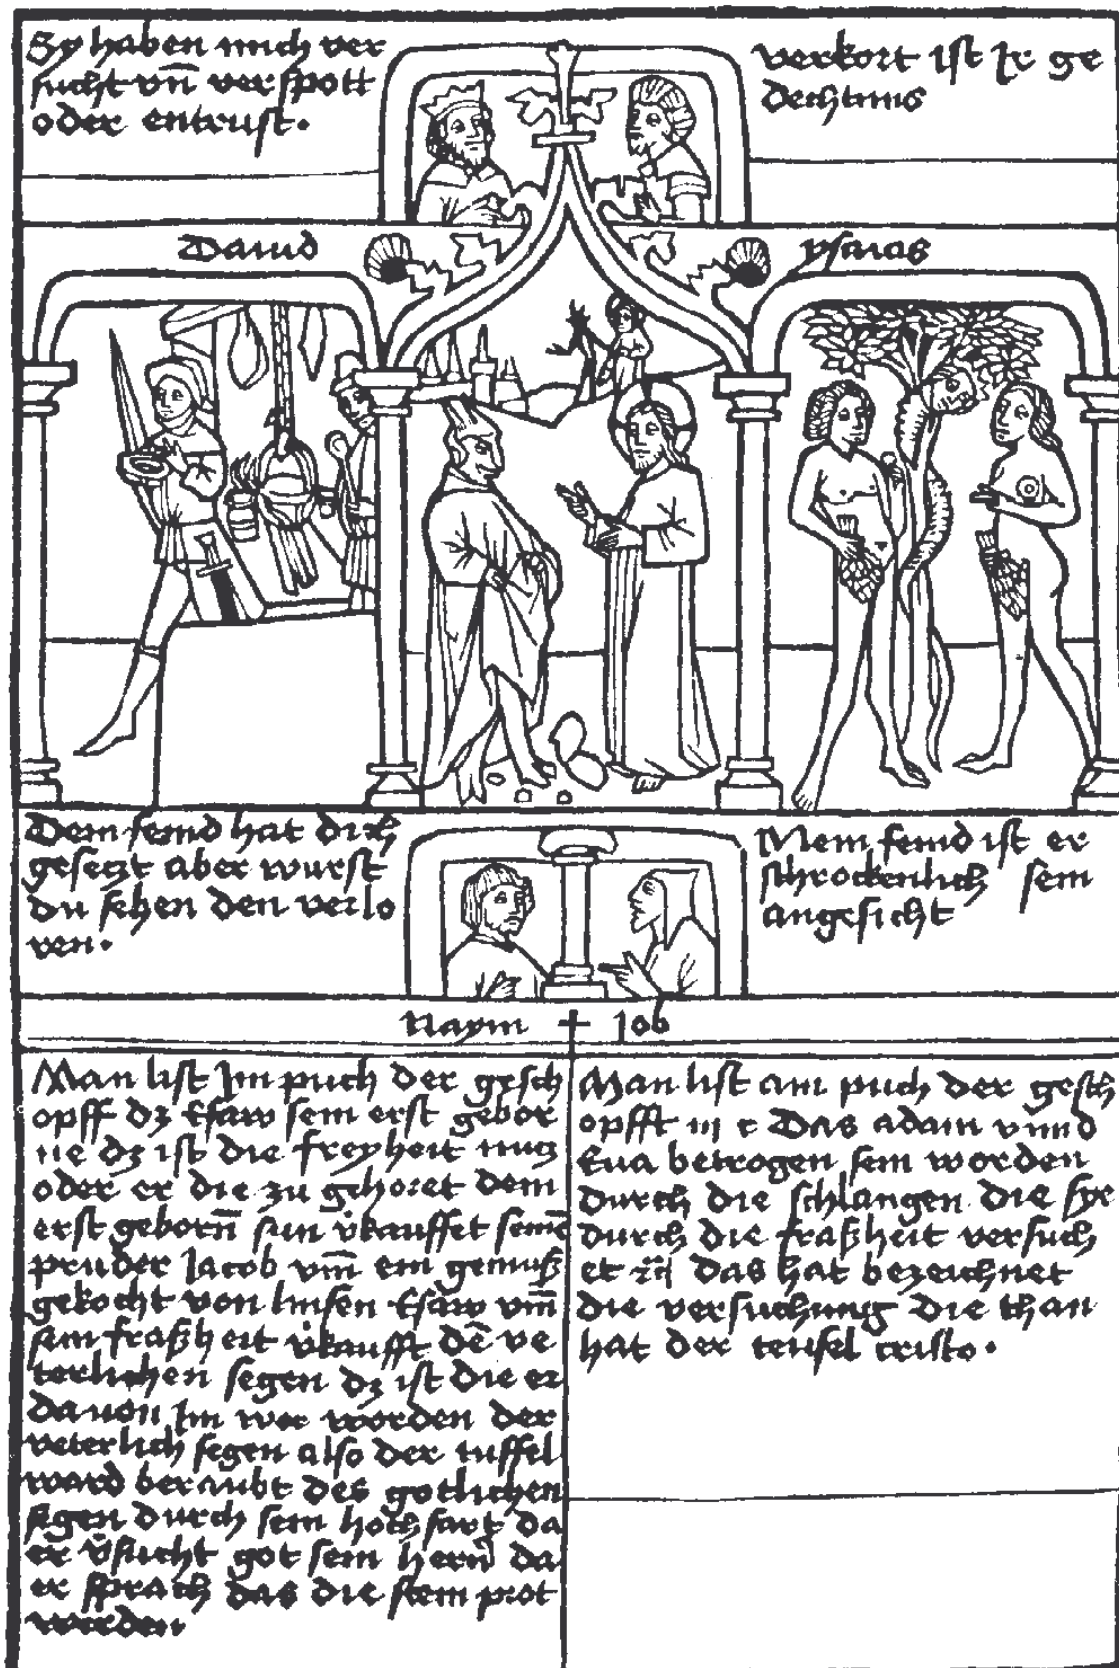 Sy haben mich ver
sucht vn̄ verspott
oder entrust.
verkort ist Ir ge
dechtnus
Dauid
ysaias
Dem feind hat dich
gesetzt aber wurst
du sehen den verlo
ren.
Mein feind ist er
schrockenlich sein
angesicht
Naym + Job
Man list Im puch der gesch
opff dz Esaw sein erst gebor
ne dz ist die freyheit nutz
oder er die zu gehoret dem
erst geborn̄ sun v̇kauffet seinē
pruder Jacob vm̄ ein gemuß
gekocht von linsen Esaw vm̄
sein fraßheit v̇kaufft dē ve
terlichen segen dz ist die er
dauon Im wer worden der
veterlich segen also der tuffel
ward beraubt des gotlichen
segen durch sein hochfart da
er v̇sucht got sein hern̄ da
er sprach das die stein prot
werden
Man list am puch der gesch
opfft iij c Das adam vnnd
Eua betrogen sein worden
durch die schlangen die sye
durch die fraßheit versuch
et das hat bezeichnet
die versuchung die than
hat der teufel cristo.